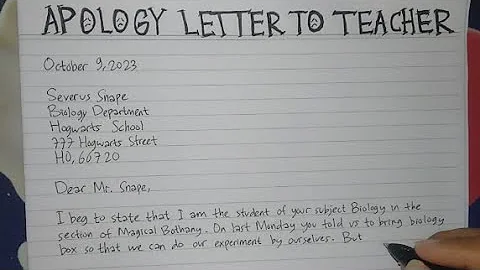 APOLOGY LETTER TO TEACHER
October 9, 2023
Severus Snape
Biology Department
Hogwarts School
777 Hogwarts Street
HO, 66720
Dear Mr. Snape,
I beg to state that I am the student of your subject Biology in the
section of Magical Bothany. On last Monday you told us to bring biology
box so that we can do our experiment by ourselves. But